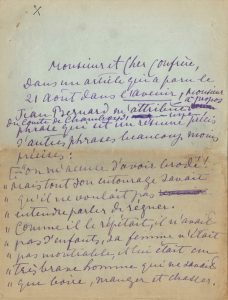 Monsieur et cher confrère,
Dans un article qui a paru le
21 Août dans l'avenir, monsieur
Jean Bernard m'attribue à propos
du comte de Chambord, une
phrase qui est un résumé précis
d'autres phrases beaucoup moins
précises :
l'on m'accuse d'avoir brodé !
" mais tout son entourage savait
" qu'il ne voulait pas
" entendre parler de régner.
" Comme il le répétait, il n'avait
" pas d'enfants, sa femme n'était
" pas montrable, et lui était un
" très brave homme qui ne savait
" que boire, manger et chasser.